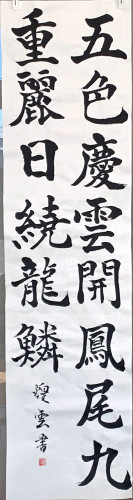 五色慶雲開鳳尾九
重麗日繞龍鱗
雲書